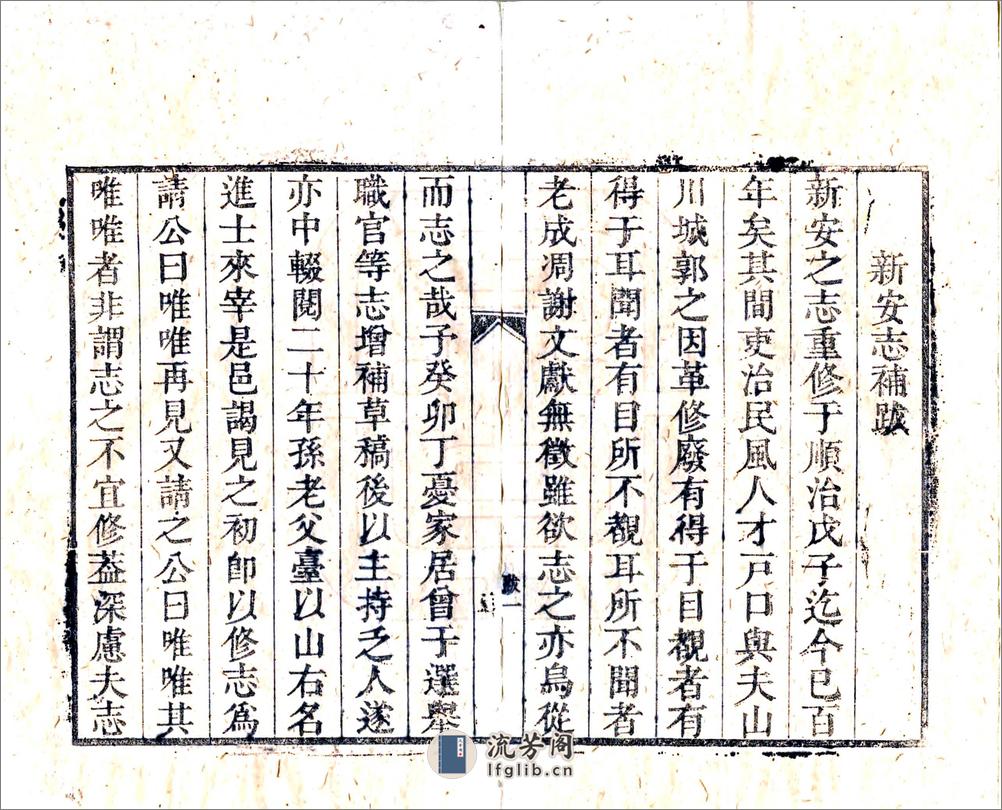 新安志補跋
新安之志重修于順治戊子迄今已百
年矣其間吏治民風人才戸口與夫山
川城郭之因革修廢有得于目覩者有
得于耳聞者有目所不覩耳所不聞者
老成凋謝文獻無徵雖欲志之亦烏從
跋
一
而志之哉予癸卯丁憂家居曾于選舉
職官等志增補草稿後以主持乏人遂
亦中輟閱二十年孫老父臺以山右名
進士來宰是邑謁見之初卽以修志爲
請公曰唯唯再見又請之公曰唯唯其
唯唯者非謂志之不宜修葢深慮夫志
流芳阁
lfglib.cn